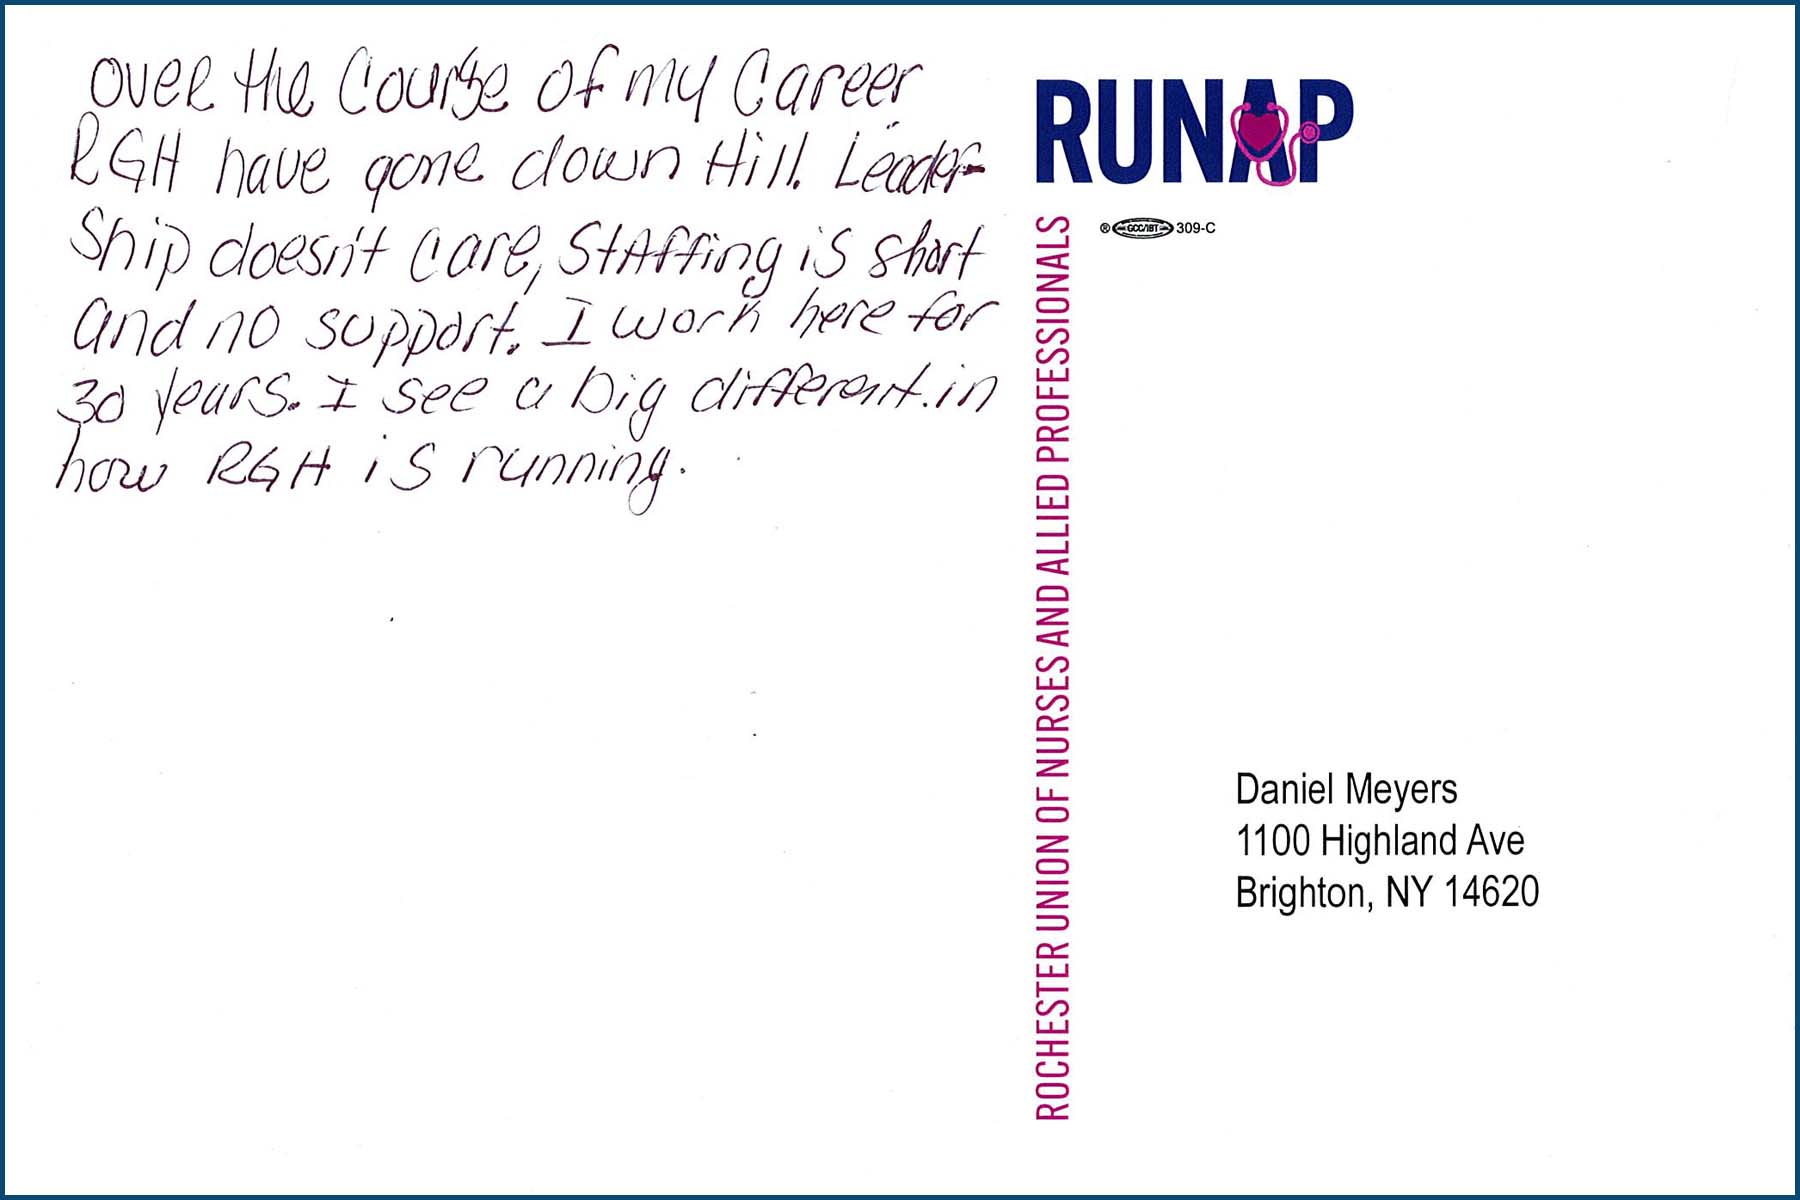 over the Course of my Career
RGH have gone down Hill. Leader-
Ship doesn't care, Staffing is short
and no support. I work here for
30 years. I see a big different in
how RGH is running.
RUNAP
® GCC/IBT 309-C
ROCHESTER UNION OF NURSES AND ALLIED PROFESSIONALS
Daniel Meyers
1100 Highland Ave
Brighton, NY 14620